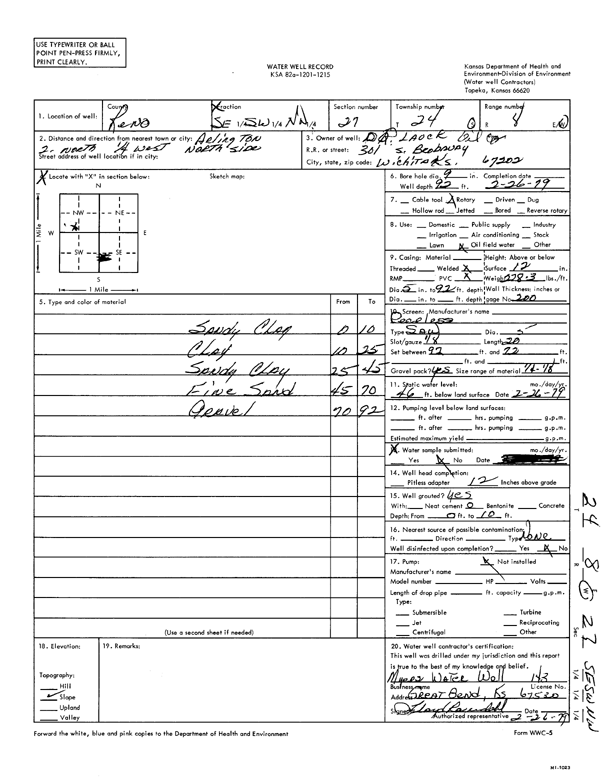 USE TYPEWRITER OR BALL
POINT PEN-PRESS FIRMLY,
PRINT CLEARLY.
WATER WELL RECORD
KSA 82a-1201-1215
Kansas Department of Health and
Environment-Division of Environment
(Water well Contractors)
Topeka, Kansas 66620
1. Location of well: County Reno Fraction SE 1/4 SW 1/4 NW 1/4 Section number 27 Township number T 24 S Range number R 8 E/W
2. Distance and direction from nearest town or city: Arlington
2 north 1/4 West North side
Street address of well location if in city:
3. Owner of well: Oil Co
R.R. or street: 301 S. Broadway
City, state, zip code: Wichita Ks. 67202
Locate with "X" in section below:
Sketch map:
N
NW NE
W E
SW SE
S
1 Mile
1 Mile
6. Bore hole dia. 9 in. Completion date
Well depth 92 ft. 2-26-79
7. Cable tool X Rotary Driven Dug
Hollow rod Jetted Bored Reverse rotary
8. Use: Domestic Public supply Industry
Irrigation Air conditioning Stock
Lawn X Oil field water Other
9. Casing: Material Height: Above or below
Threaded Welded X Surface 12 in.
RMP PVC X Weight 278.3 lbs./ft.
Dia. 5 in. to 92 ft. depth Wall Thickness: inches or
Dia. in. to ft. depth gage No. 200
5. Type and color of material From To
Sandy Clay 0 10
Clay 10 25
Sandy Clay 25 45
Fine Sand 45 70
Gravel 70 92
(Use a second sheet if needed)
10. Screen: Manufacturer's name
Peerless
Type Saw Dia. 5
Slot/gauze 1/8 Length 20
Set between 92 ft. and 72 ft.
ft. and ft.
Gravel pack? yes Size range of material
11. Static water level: mo./day/yr.
46 ft. below land surface Date 2-26-79
12. Pumping level below land surfaces:
ft. after hrs. pumping g.p.m.
ft. after hrs. pumping g.p.m.
Estimated maximum yield g.p.m.
Water sample submitted: mo./day/yr.
Yes X No Date
14. Well head completion:
Pitless adapter 12 Inches above grade
15. Well grouted? yes
With: Neat cement Bentonite Concrete
Depth: From 0 ft. to 10 ft.
16. Nearest source of possible contamination:
ft. Direction Type None
Well disinfected upon completion? Yes X No
17. Pump: X Not installed
Manufacturer's name
Model number HP Volts
Length of drop pipe ft. capacity g.p.m.
Type:
Submersible Turbine
Jet Reciprocating
Centrifugal Other
18. Elevation:
19. Remarks:
Topography:
Hill
Slope
Upland
Valley
20. Water well contractor's certification:
This well was drilled under my jurisdiction and this report
is true to the best of my knowledge and belief.
Myers Water Well 143
Business name License No.
Address Great Bend, Ks 67530
Signed Floyd
Authorized representative 2-26-79
Forward the white, blue and pink copies to the Department of Health and Environment
Form WWC-5
T 24 R 8 W Sec 27 SE SW NW
1/4 1/4 1/4